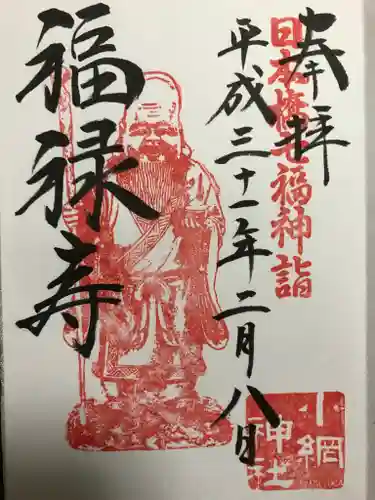 奉拝
日本橋七福神詣
平成三十一年二月八日
福禄寿
小網
神社